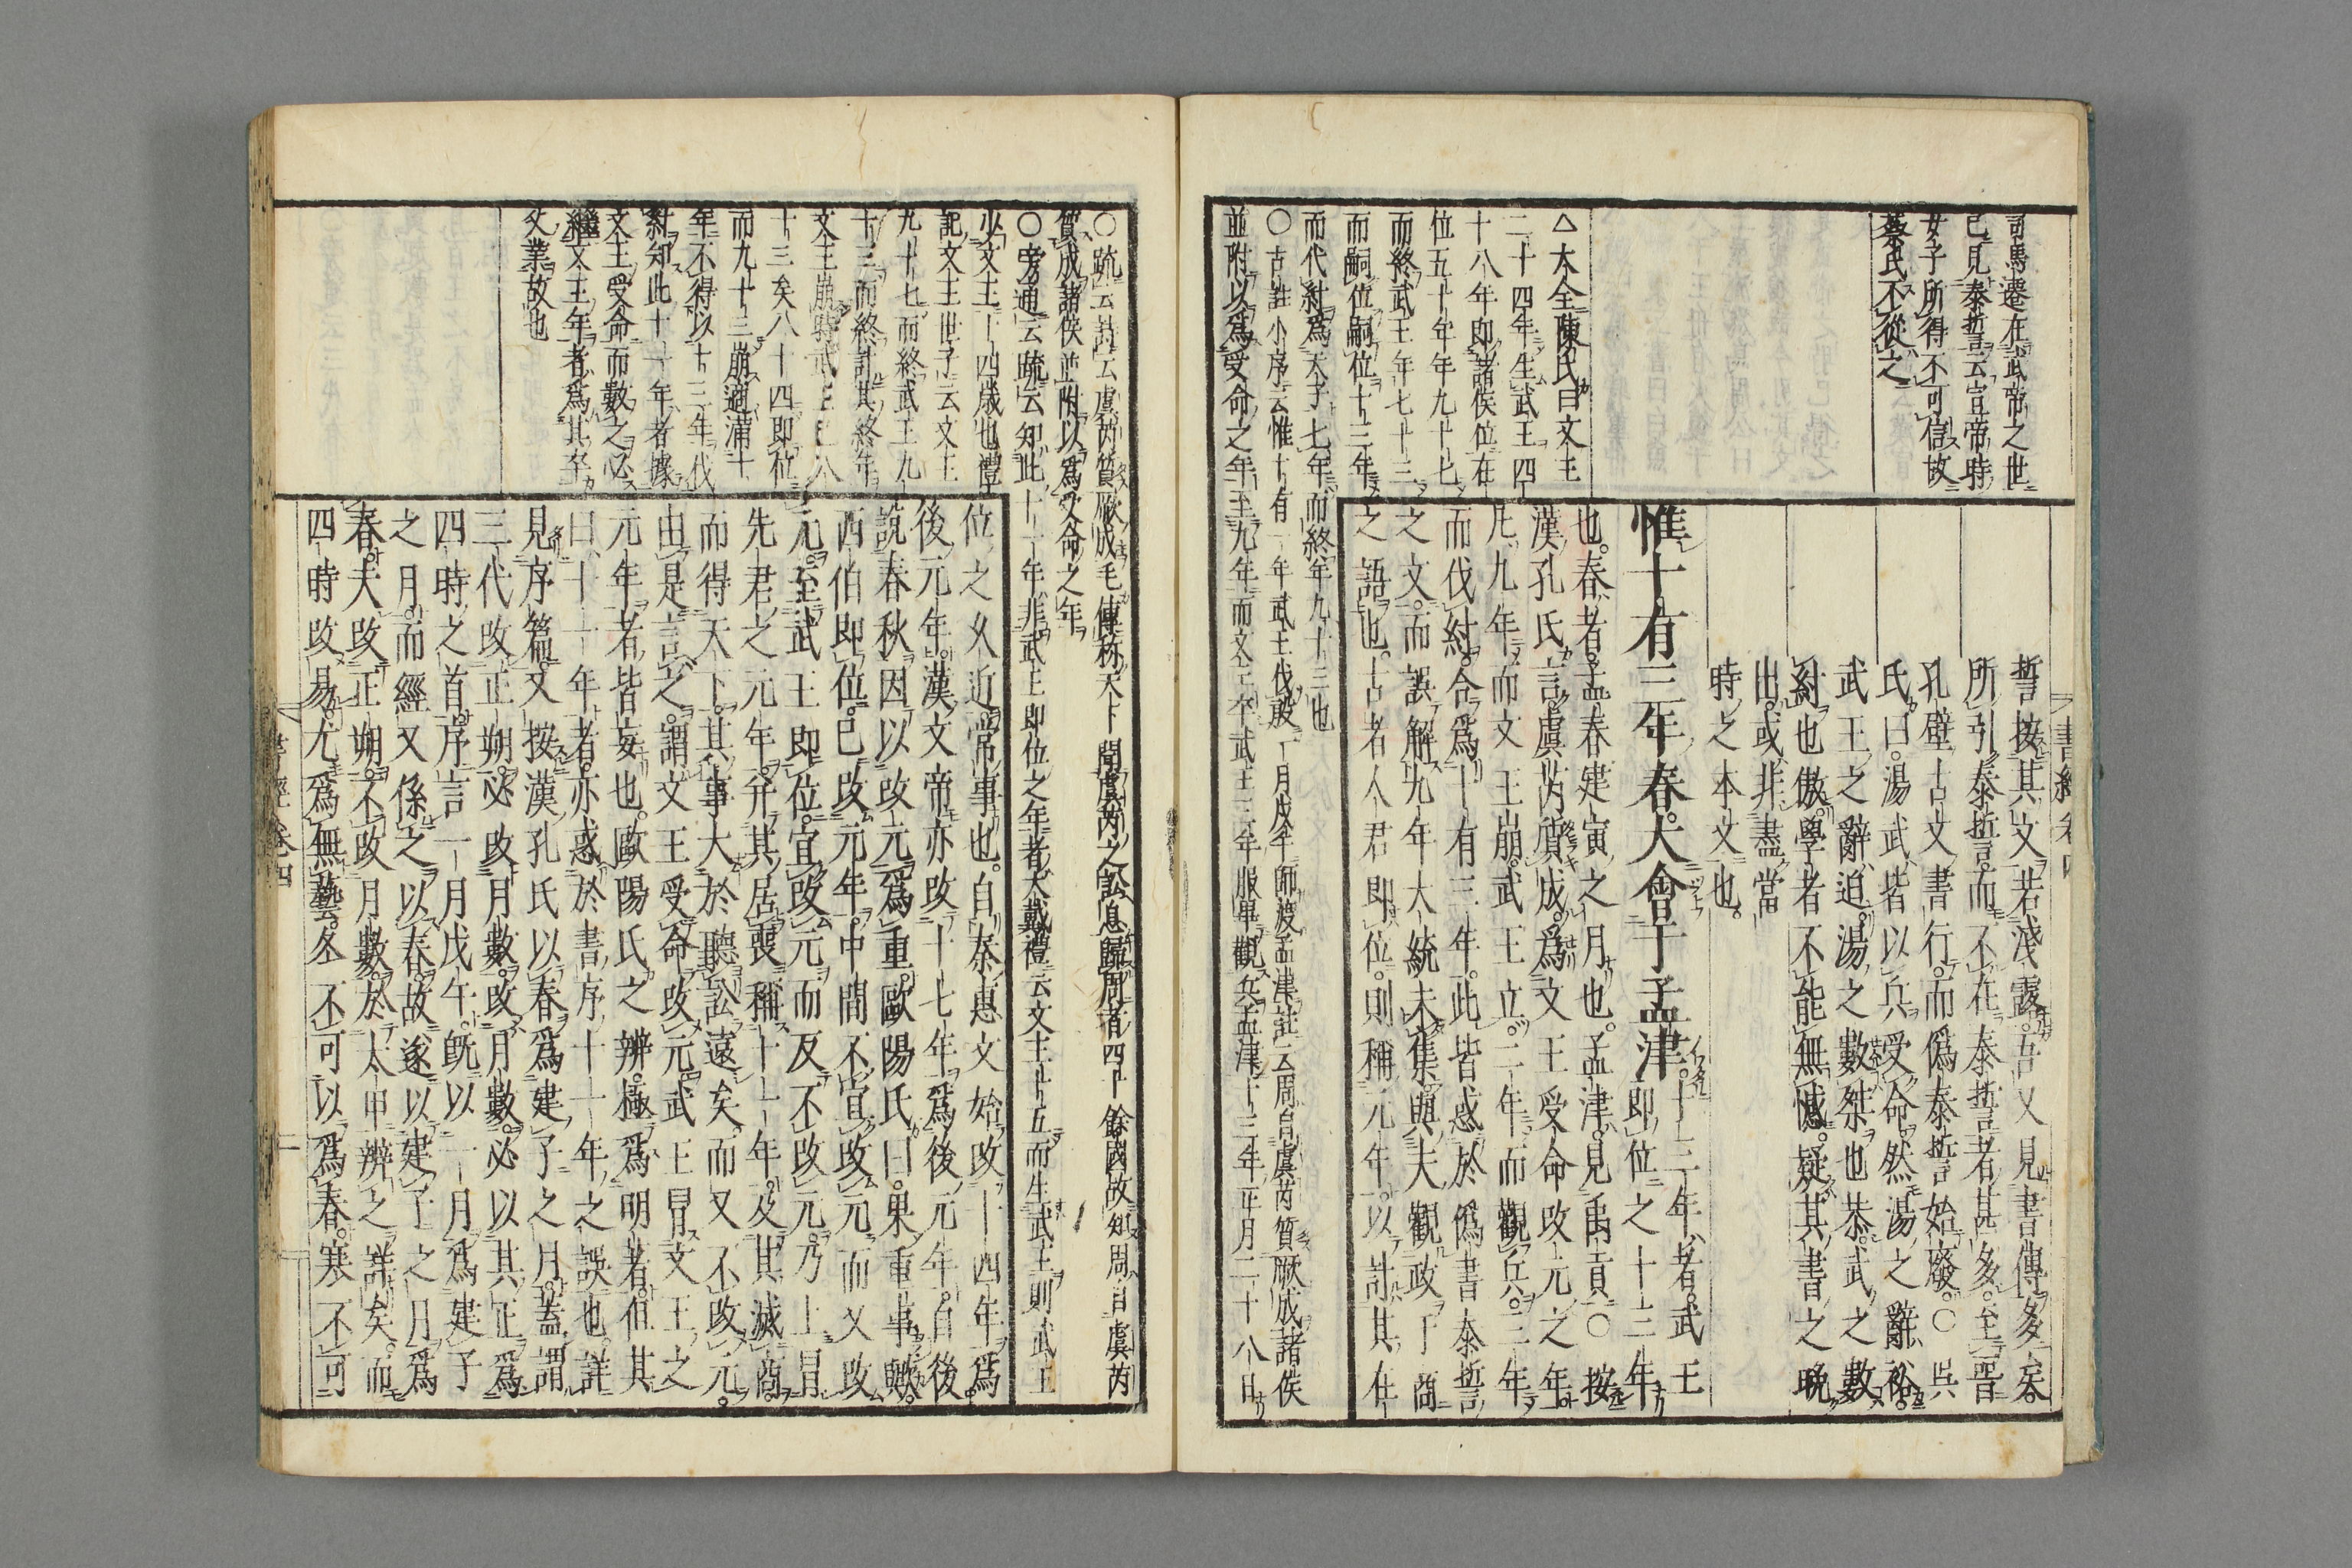 司馬遷在武帝之世
已見泰誓云宣帝時
女子所得不可信故
蔡氏不從之
誓按其文若淺露吾又見書傳多矣
所引泰誓而不在泰誓者甚多至晉
孔壁古文書行而偽泰誓始廢○呉
氏曰湯武皆以兵受命然湯之辭裕
武王之辭迫湯之數桀也恭武之數
紂也傲學者不能無憾疑其書之晚
出或非盡當
時之本文也
惟十有三年春大會于孟津十三年者武王
即位之十三年
也春者孟春建寅之月也孟津見禹貢○按
漢孔氏言虞芮質成為文王受命改元之年
凡九年而文王崩武王立二年而觀兵三年
而伐紂合為十有三年此皆惑於偽書泰誓
之文而誤解九年大統未集與夫觀政于商
之語也古者人君即位則稱元年以計其在
△大全陳氏曰文王
二十四年生武王四
十八年即諸侯位在
位五十年年九十七
而終武王年七十三
而嗣位嗣位十三年
而代紂為天子七年而終年九十三也
○古註小序云惟十有一年武王伐殷一月戊午師渡孟津註云周自虞芮質厥成諸侯
並附以為受命之年至九年而文王卒武王三年服畢觀兵孟津十三年正月二十八日
書經卷四
○疏云註云虞芮質厥成毛傳称天下聞虞芮之訟息歸周者四十餘國故知周自虞芮
質成諸侯並附以為受命之年
○旁通云疏云知此十一年非武王即位之年者大戴禮云文王十五而生武王則武王
少文王十四歲也禮
記文王世子云文王
九十七而終武王九
十三而終計其終年
文王崩時武王已八
十三矣八十四即位
而九十三崩適滿十
年不得以十三年伐
紂知此十一年者據
文王受命而數之必
繼文王年者為其卒
父業故也
位之久近常事也自秦惠文始改十四年為
後元年漢文帝亦改十七年為後元年自後
說春秋因以改元為重歐陽氏曰果重事歟
西伯即位已改元年中間不宜改元而又改
元至武王即位宜改元而反不改元乃上冒
先君之元年并其居喪稱十一年及其滅商
而得天下其事大於聽訟遠矣而又不改元
由是言之謂文王受命改元武王冒文王之
元年者皆妄也歐陽氏之辨極為明著但其
曰十一年者亦惑於書序十一年之誤也詳
見序篇又按漢孔氏以春為建子之月蓋謂
三代改正朔必改月數改月數必以其正為
四時之首序言一月戊午既以一月為建子
之月而經又係之以春故遂以建子之月為
春夫改正朔不改月數於太甲辨之詳矣而
四時改易尤為無藝冬不可以為春寒不可
書經卷四
二